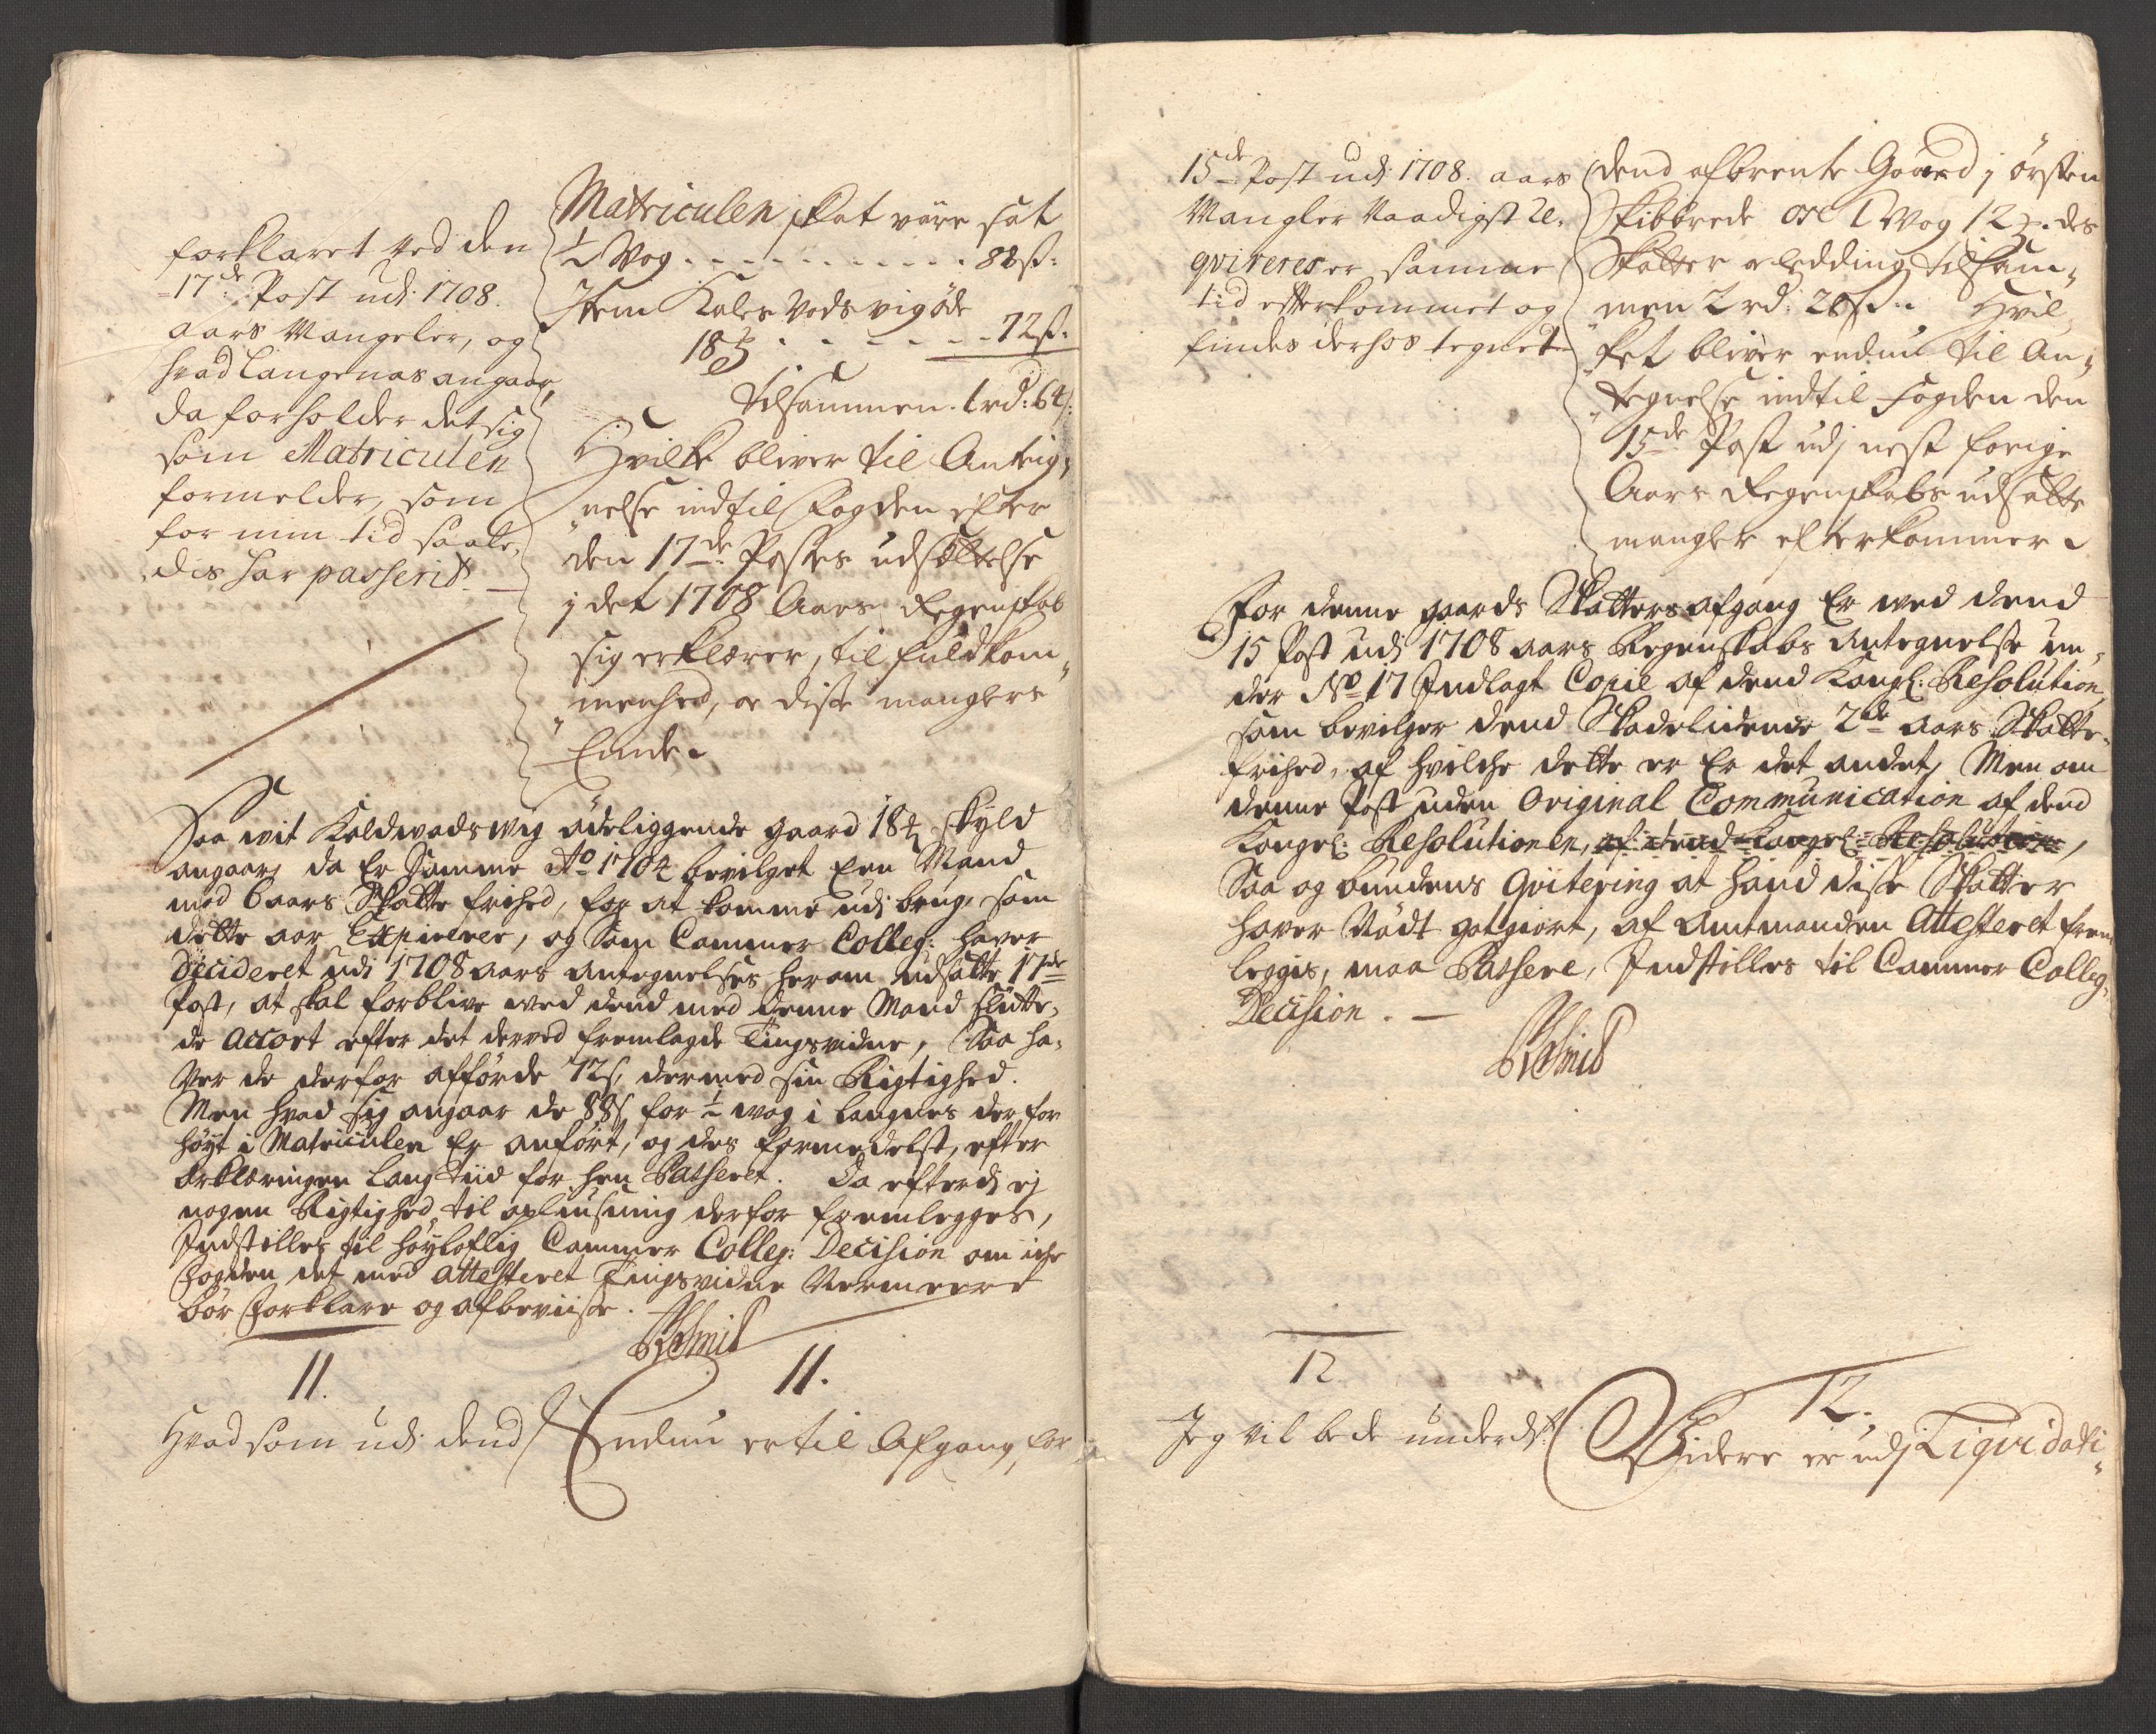 forklaret ved den
17de Post udi 1708.
aars Mangeler, og
hvad Langenas angaar,
da forholder det sig
som Matriculen
formelder, som
for min tid saale,
dis har passerit. —
Matriculen skat være sat
½ Vog . . . . . . . . . . . 88 s:
Item Kales Vods vig øde
18 . . . . . . . 72 s:
tilsammen. 1 rd: 64 s:
Hvilke bliver til Anteig,
nelse indtil Fogden efter
den 17de Postes udsættelse
j det 1708 Aars Regenskab
sig erklærer, til fuldkom
menhed, og disse manglers
Ende.
Saa vit Koldwadswig ödeliggende gaard 18 skyld
angaar, da Er Samme Ao 1704 bevilget Een Mand
med 6 aars Skatte frihed, for at komme udi brug, som
dette aar Expirerer, og Som Cammer Colleg: haver
Decideret udi 1708 aars antegnelses herom udsatte 17de
Post, at skal forblive ved dend med denne Mand slutte,
de Accort efter det derved fremlagde Tingsvidne, Saa ha,
ver de derfor afförde 72 s, dermed sin Rigtighed.
Men hvad sig angaar de 88 s for ½ wog i Langnes der for
höyt i Matriculen Er anfört, og des formedelst, efter
Erklæringen lang tiid for hen Passeret. Da efterdj ej
nogen Rigtighed til oplysning derfor fremlegges,
Indstilles til höyloflig Cammer Colleg: Decision om iche
Fogden det med attesteret Tingsvidne Nermeere
bör Forklare og afbeviise.
11.
Hvad som udi dend
11.
Endnu er til Afgang, for
15de Post udi 1708. aars
Mangler Naadigst re,
qvireres er samme
tid efterkommet og
findes derhos tegnet
dend afbrente Gaard j örsten
Skibbrede or 1 Vog 12 . des
Skatter o Ledding tilsam,
men 2 rd: 20 s: Hvil,
ket bliver endnu til An,
tegnelse indtil Fogden den
15de Post udj nest forige
Aars Regenskabs udsatte
mangler efterkommer.
For denne gaards Skatters afgang Er ved dend
15 Post udi 1708 aars Regenskabs Antegnelse un,
der No 17 Indlagt Copie af dend Kongl: Resolution,
som bevilger dend Skadelidende 2de aars Skatte,
frihed, af hvilche dette er Er det andet, Men om
denne Post uden Original Communication af dend
Kongel: Resolutionen, af dend Kongel: Resolution,
Saa og bundens Qvitering at hand disse Skatter
haver Nödt gotgiort, af Amtmanden Attesteret frem
leggis, maa Passere, Indstilles til Cammer Colleg,
Decision. —
12
Jeg vil bede underdt:
12.
Videre er udj Liqvidati,